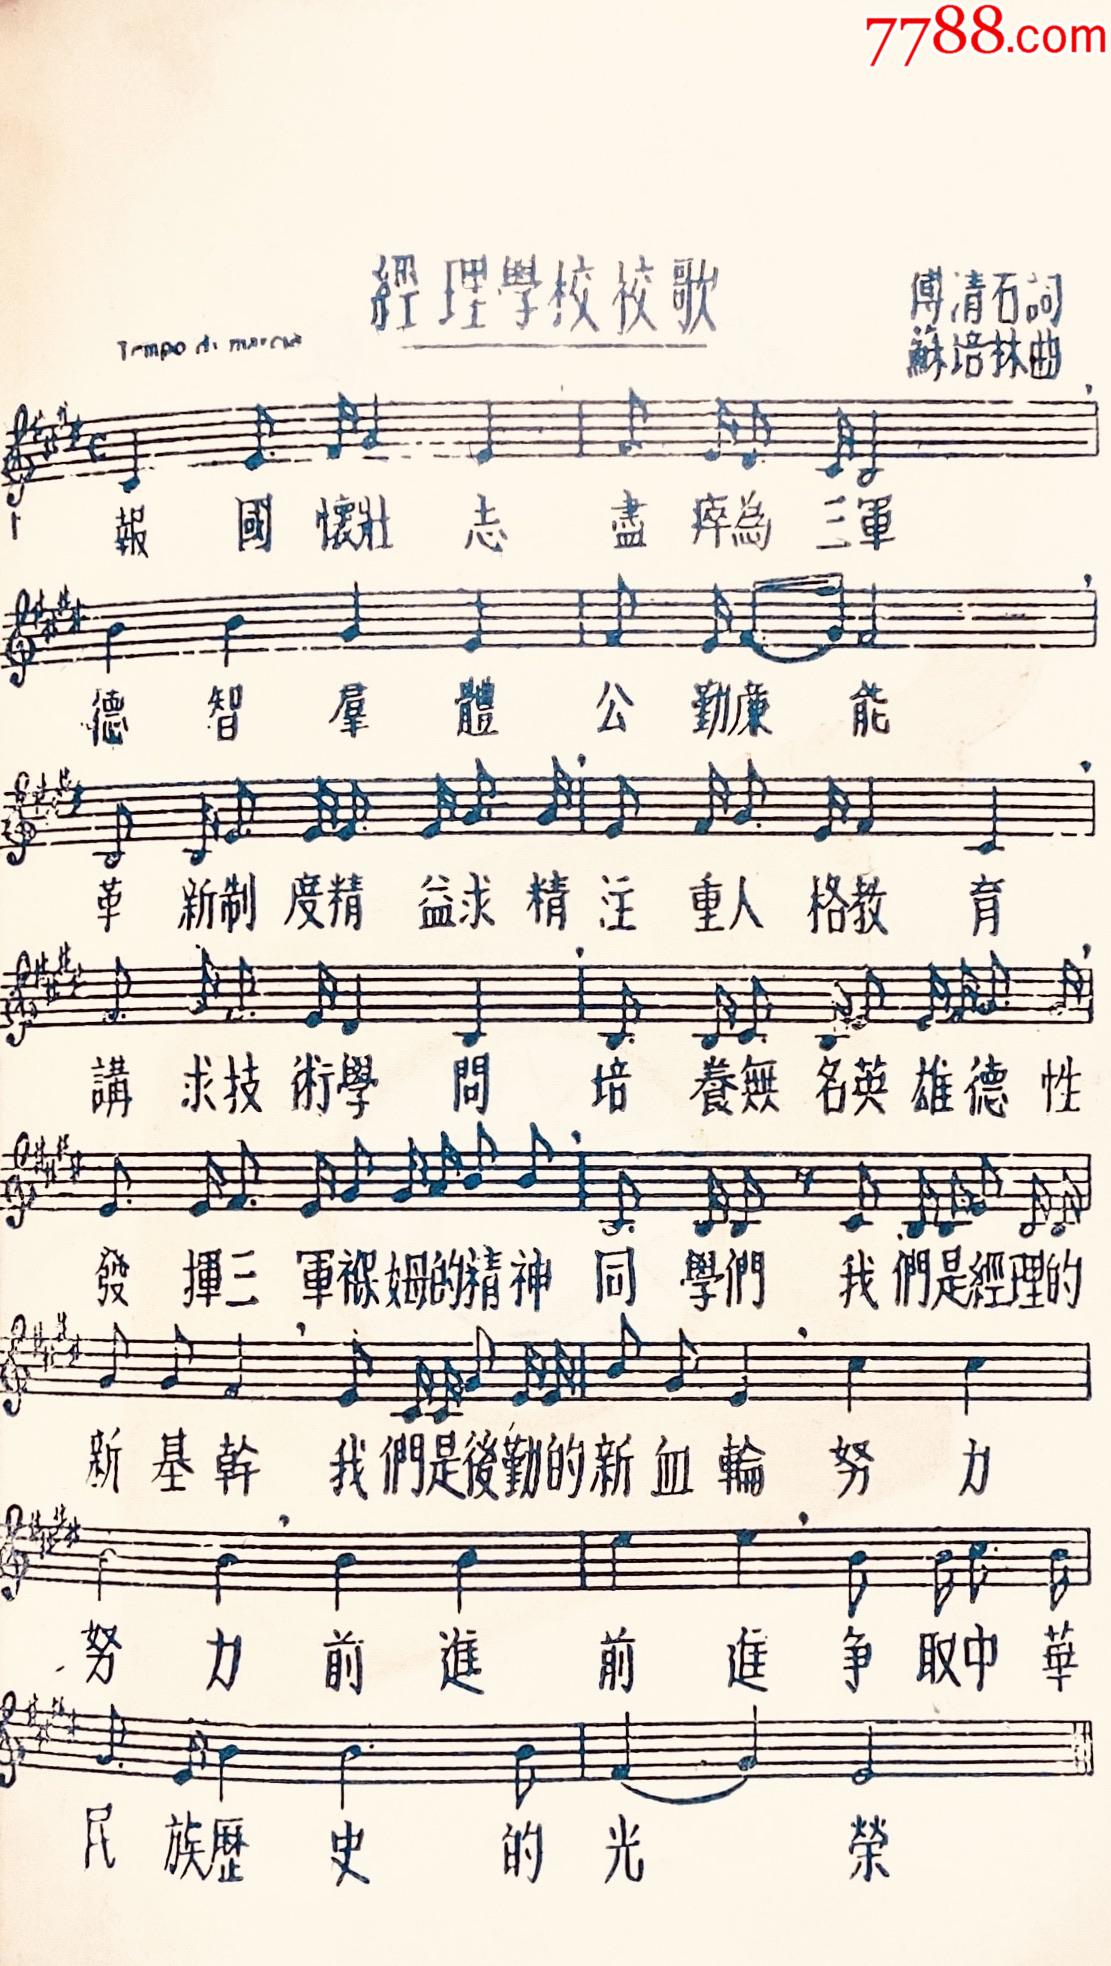 7788.com
經理學校校歌
傅清石詞
蘇培林曲
Tempo di marcia
報國懷壯志盡瘁為三軍
德智羣體公勤廉能
革新制度精益求精注重人格教育
講求技術學問培養無名英雄德性
發揮三軍褓姆的精神同學們我們是經理的
新基幹我們是後勤的新血輪努力
努力前進前進爭取中華
民族歷史的光榮